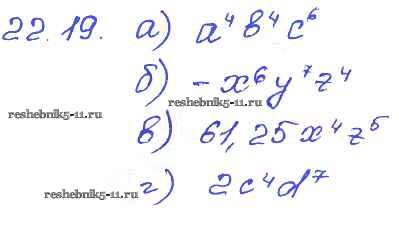 22.19. а) a⁴b⁴c⁶
б) -x⁶y⁷z⁴
reshebnik5-11.ru
reshebnik5-11.ru
в) 61,25x⁴z⁵
г) 2c⁴d⁷
reshebnik5-11.ru